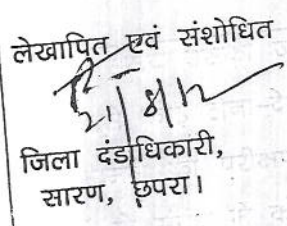 लेखापित एवं संशोधित
21/8/12
जिला दंडाधिकारी,
सारण, छपरा।